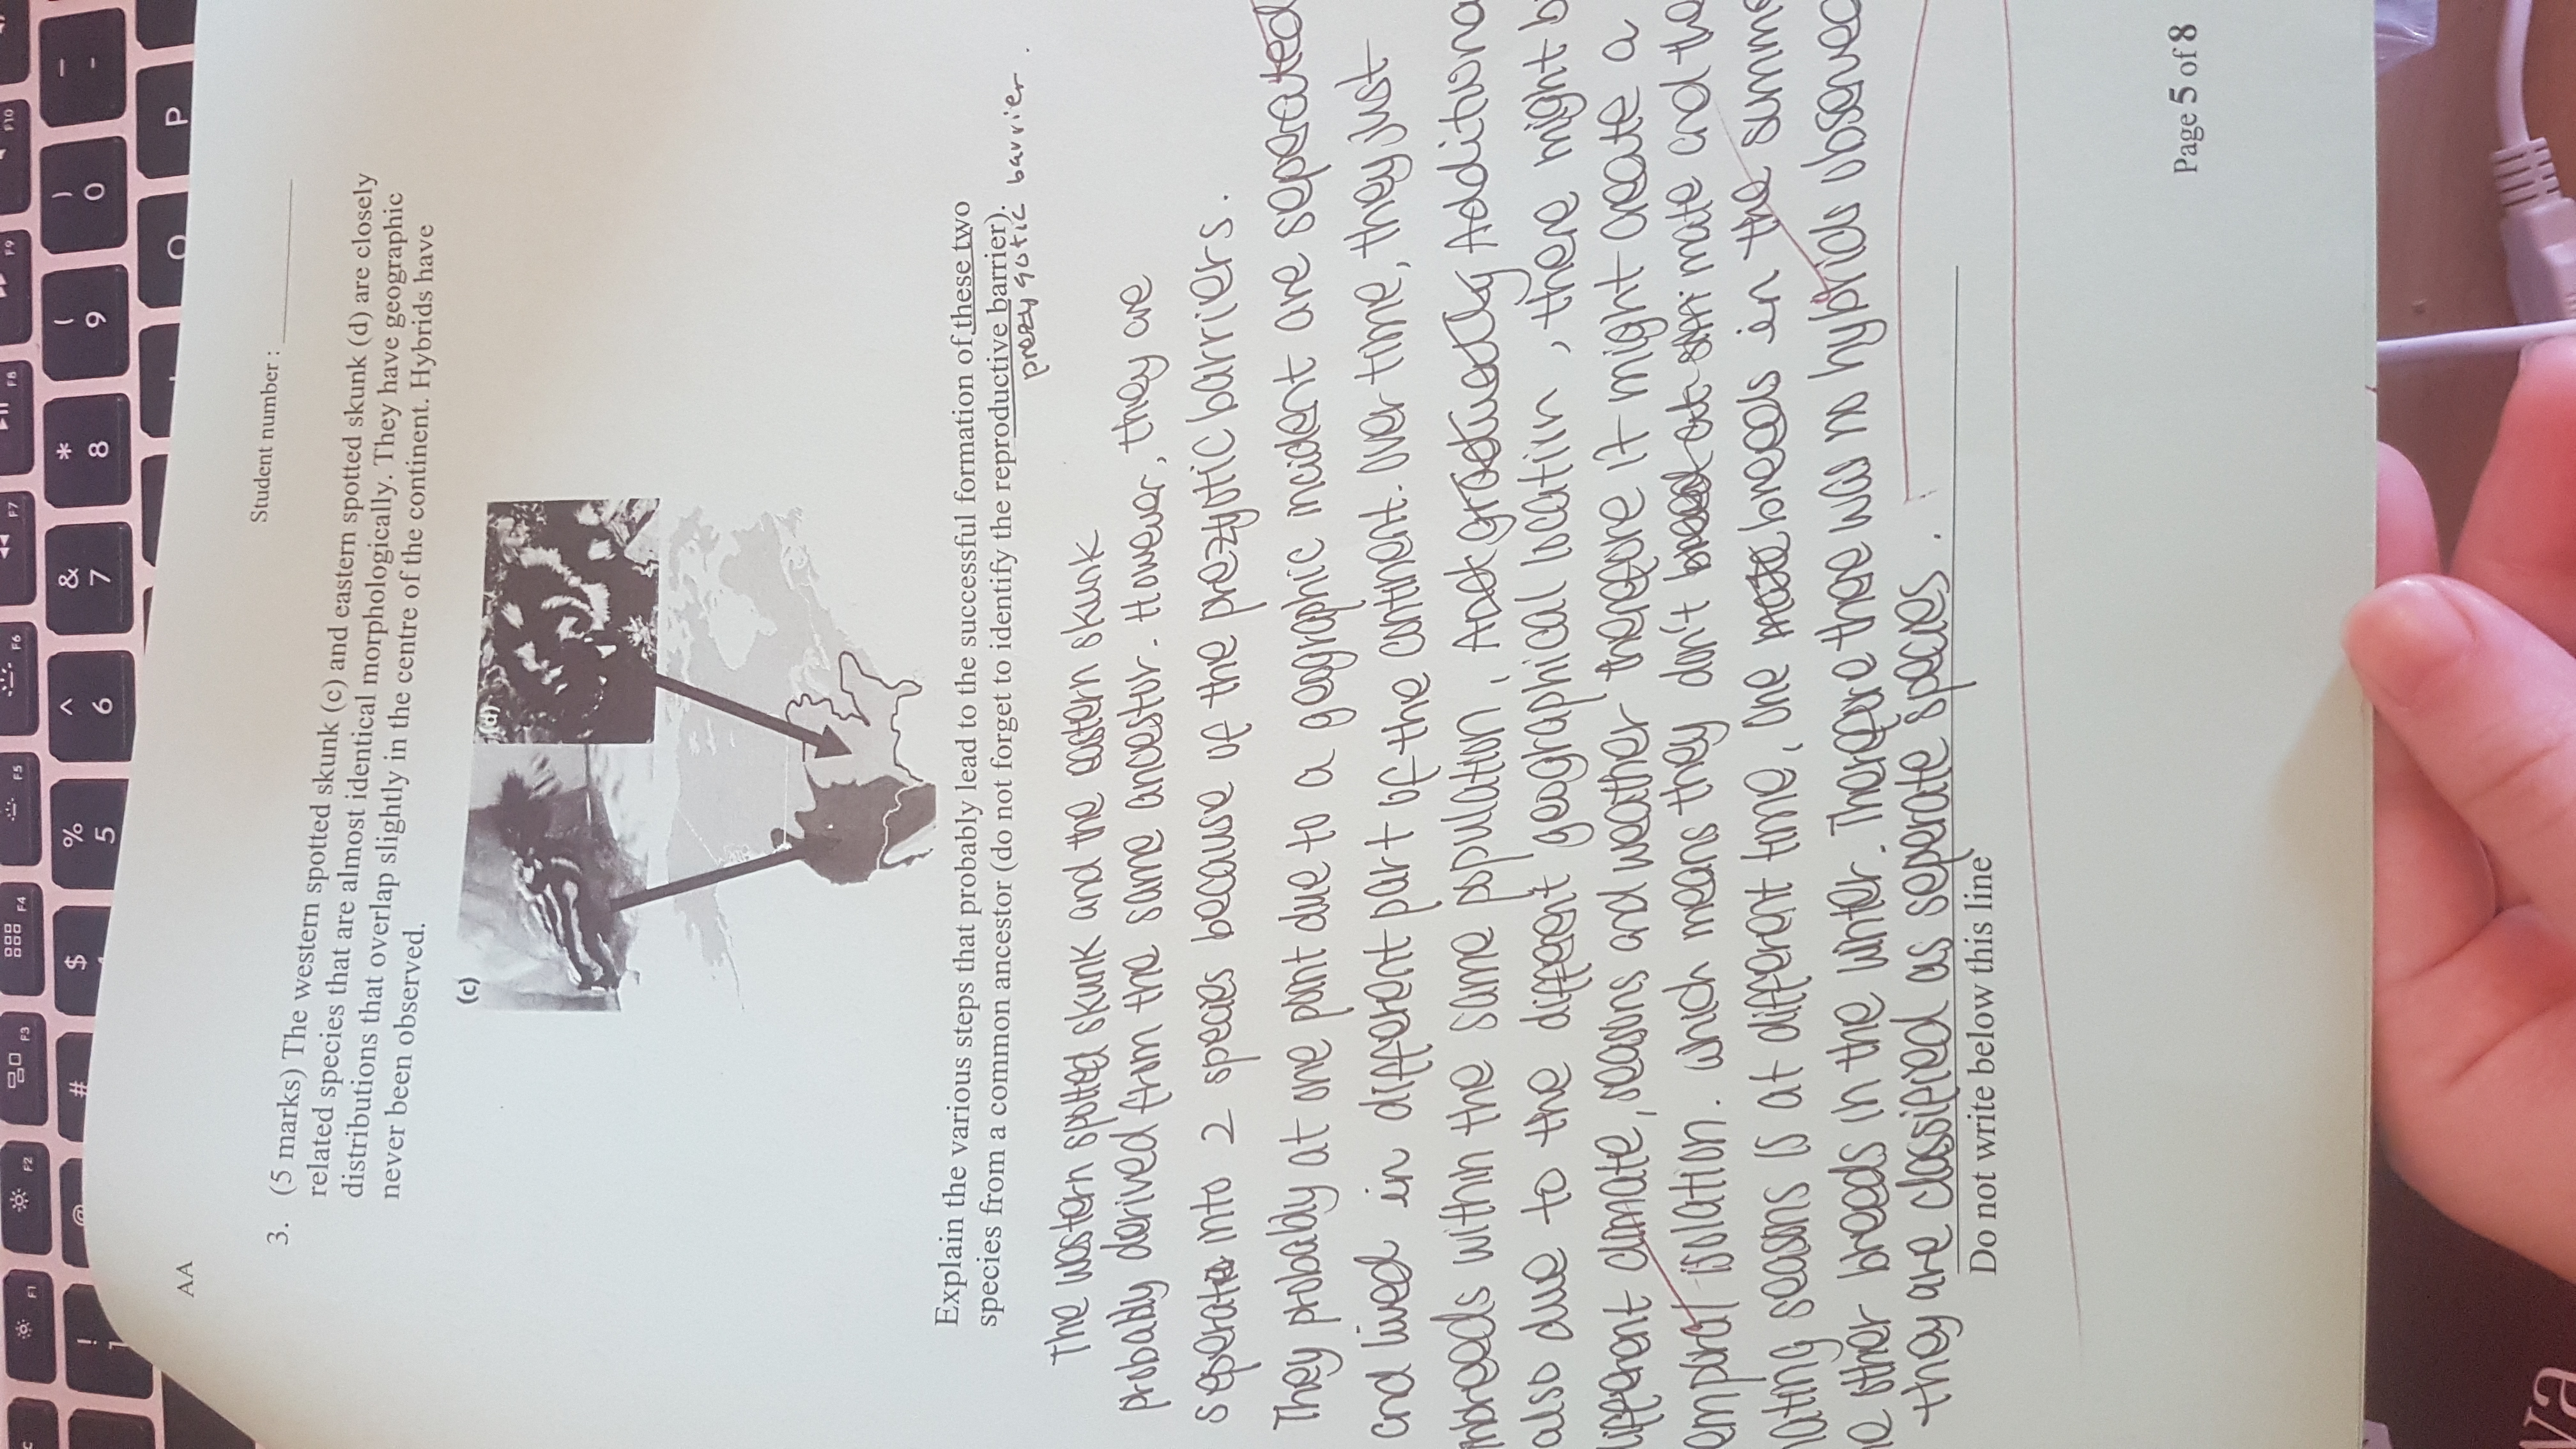 AA
Student number :
3. (5 marks) The western spotted skunk (c) and eastern spotted skunk (d) are closely
related species that are almost identical morphologically. They have geographic
distributions that overlap slightly in the centre of the continent. Hybrids have
never been observed.
(c)
(d)
Explain the various steps that probably lead to the successful formation of these two
species from a common ancestor (do not forget to identify the reproductive barrier).
prezygotic barrier.
The western spotted skunk and the eastern skunk
probably derived from the same ancestor. However, they are
seperate into 2 species because of the prezytic barriers.
They probably at one point due to a geographic incident are seperated
and lived in different part of the continent. Over time, they just
inbreeds within the same population. Additiona
also due to the different geographical location, there might b
ifferent climate, seasons and weather therefore it might create a
emporal isolation. which means they don't mate and the
ating seasons is at different time, one breeds in the summe
he other breeds in the winter. Therefore there was no hybrids observed
they are classified as seperate species.
Do not write below this line
Page 5 of 8
F1
F2
F3
F4
F5
F6
F7
F8
F9
F10
!
1
@
#
$
%
5
^
6
&
7
*
8
(
9
)
0
_
-
O
P
va